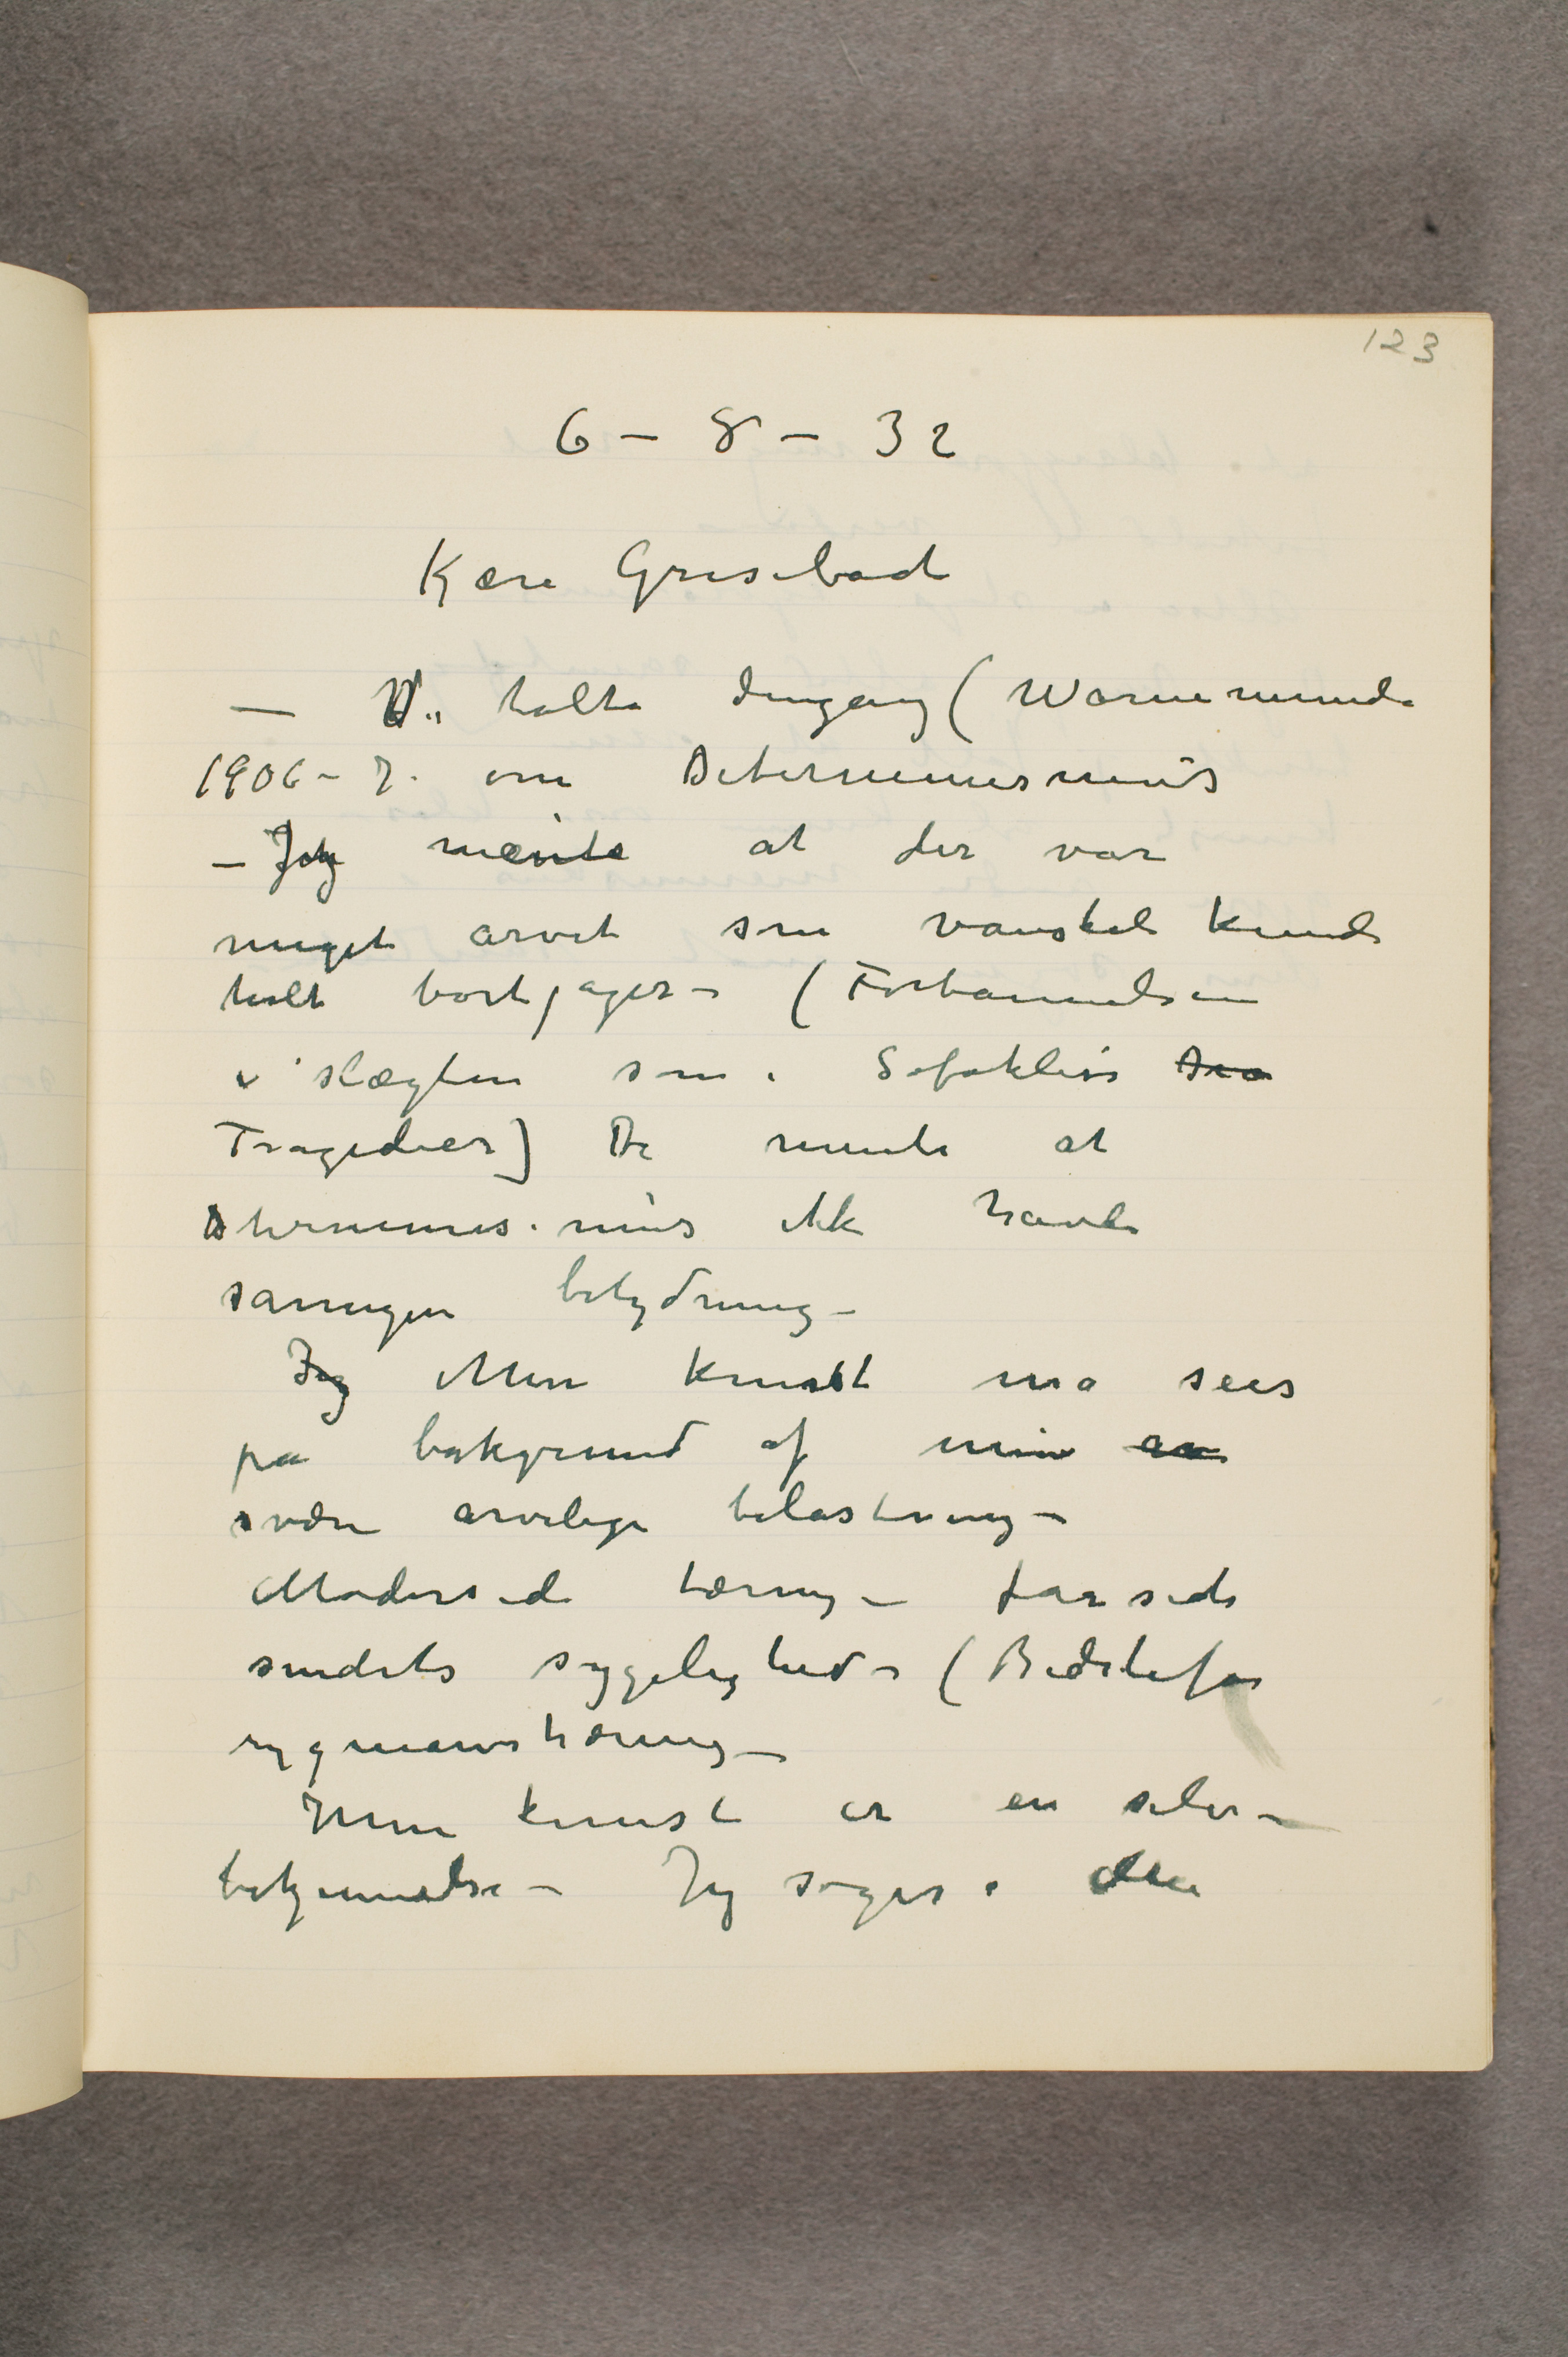 123
6 – 8 – 32
Kære Grisebach
– Vi talte dengang (Warnemunde
1906–7. om Determinismus
– Jeg mente at der var
meget arvet som vanskeli kunde
helt bortjages – (Forbannelsen
i slægten som i Sofokles's Dra
Tragedier) De mente at
Determinismus ikke havde
saameget betydning –
Jeg Min kunst må sees
på bakgrund af min arv
svære arvelige belastning –
Moders side tæring – fars side
sindets sygelighed – (Bedstefar
rygmarvstæring –
Min kunst er en selv-
bekjennelse – Jeg søger i den